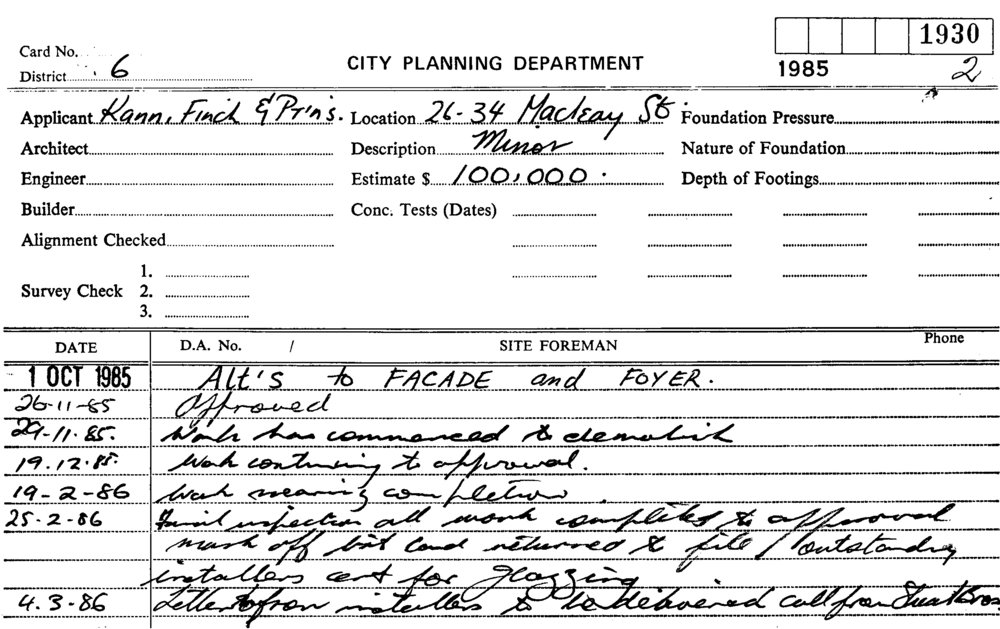 Card No.
District 6
CITY PLANNING DEPARTMENT
1930
1985 2
Applicant Kann, Finch & Prins. Location 26-34 Macleay St. Foundation Pressure
Architect Description Minor Nature of Foundation
Engineer Estimate $ 100,000. Depth of Footings
Builder Conc. Tests (Dates)
Alignment Checked
1.
Survey Check 2.
3.
DATE D.A. No. / SITE FOREMAN Phone
1 OCT 1985 Alt's to FACADE and FOYER.
26-11-85 Approved
29-11-85. Work has commenced to demolish
19.12.85. Work continuing to approval.
19-2-86 Work nearing completion.
25.2-86 Final inspection all work completed to approval
mark off bit card returned to file / outstanding
installers cert for glazzing
4.3-86 Letter from installers to be delivered call from Stuart Bros